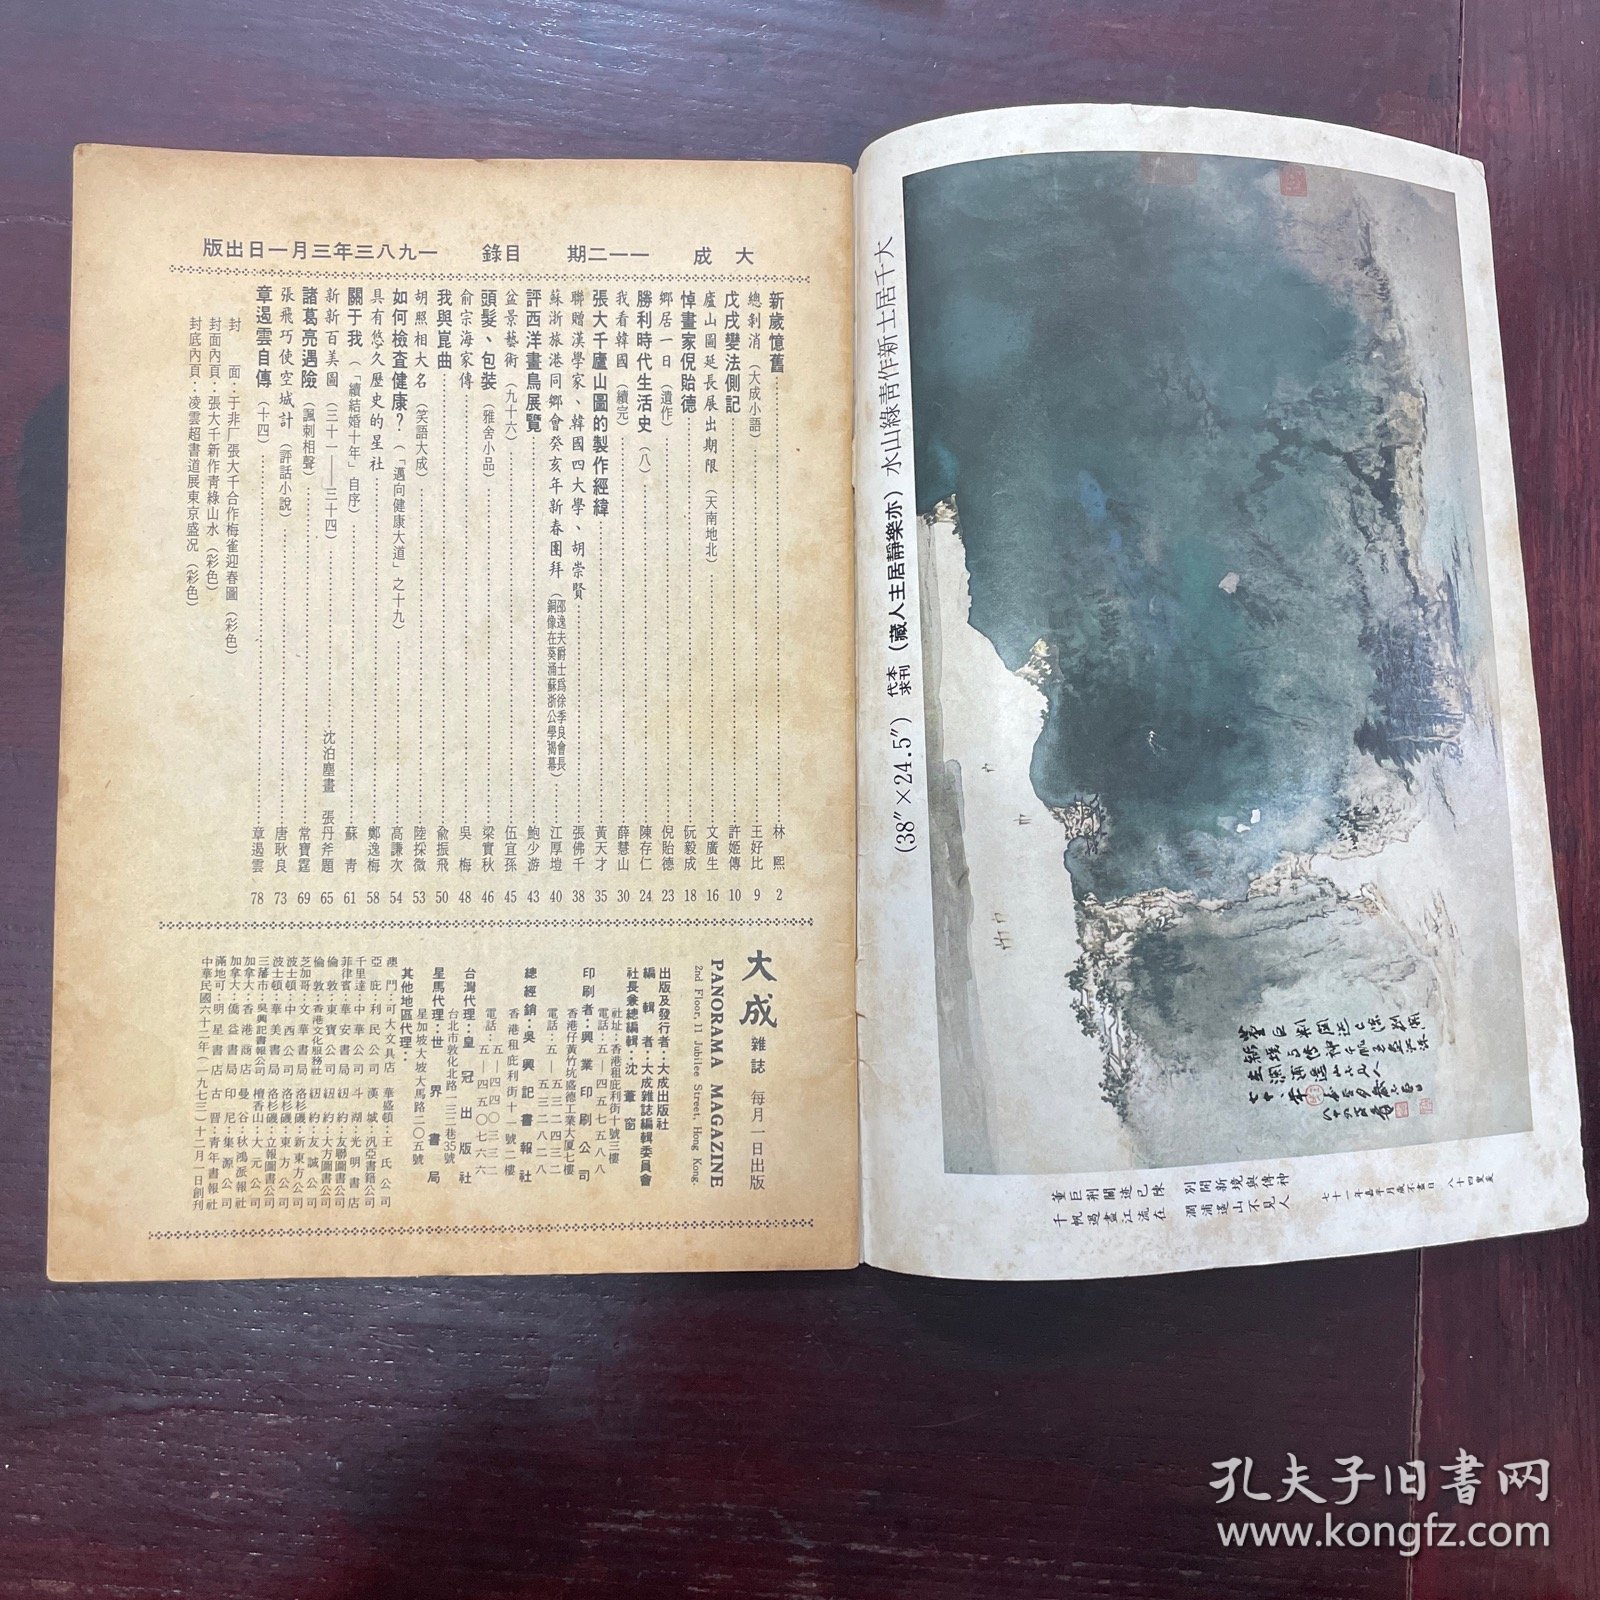 大成　一一二期　目錄　一九八三年三月一日出版
新歲憶舊 林熙 2
總剝消（大成小語） 王好比 9
戊戌變法側記 許姬傳 10
廬山圖延長展出期限（天南地北） 文廣生 16
悼畫家倪貽德 阮毅成 18
鄉居一日（遺作） 倪貽德 23
勝利時代生活史（八） 陳存仁 24
我看韓國（續完） 薛慧山 30
張大千廬山圖的製作經緯 黃天才 35
聯贈漢學家、韓國四大學、胡崇賢 張佛千 38
蘇浙旅港同鄉會癸亥年新春團拜（邵逸夫爵士爲徐季良會長銅像在葵涌蘇浙公學揭幕） 江厚塏 40
評西洋畫鳥展覽 鮑少游 43
盆景藝術（九十六） 伍宜孫 45
頭髮、包裝（雅舍小品） 梁實秋 46
俞宗海家傳 吳梅 48
我與崑曲 俞振飛 50
胡照相大名（笑語大成） 陸採微 53
如何檢查健康？（「邁向健康大道」之十九） 高謙次 54
具有悠久歷史的星社 鄭逸梅 58
關于我（「續結婚十年」自序） 蘇青 61
新新百美圖（三十一——三十四） 沈泊塵畫　張丹斧題 65
諸葛亮遇險（諷刺相聲） 常寶霆 69
張飛巧使空城計（評話小說） 唐耿良 73
章遏雲自傳（十四） 章遏雲 78
封　面：于非厂張大千合作梅雀迎春圖（彩色）
封面內頁：張大千新作青綠山水（彩色）
封底內頁：凌雲超書道展東京盛況（彩色）
大成雜誌　每月一日出版
PANORAMA MAGAZINE
2nd Floor, 11 Jubilee Street, Hong Kong.
出版及發行者：大成出版社
編輯者：大成雜誌編輯委員會
社長兼總編輯：沈葦窗
社址：香港租庇利街十號三樓
電話：五—四五七五八八
印刷者：興業印刷公司
香港仔黃竹坑盛德工業大厦七樓
總經銷：吳興記書報社
香港租庇利街十一號二樓
台灣代理：皇冠出版社
台北市敦化北路一三二巷35號
星馬代理：世界書局
星加坡大坡大馬路二〇五號
其他地區代理：
澳門：可大文具店　華盛頓：王氏公司
亞庇：利民公司　漢城：汎亞書籍公司
千里達：中華公司　斗湖：光明書店
菲律賓：華安書局　紐約：友聯圖書公司
倫敦：東寶公司　紐約：大方圖書公司
倫敦：香港文化服務社　紐約：友誠公司
芝加哥：文華書局　洛杉磯：新東方公司
波士頓：中西公司　洛杉磯：東方公司
波士頓：華美書局　洛杉磯：立報圖書公司
三藩市：吳興記書報公司　檀香山：大元公司
加拿大：香港商店　曼谷：秋鴻派報社
加拿大：僑益書局　印尼：集源公司
滿地可：明星書店　古晉：青年書報社
中華民國六十二年（一九七三）十二月一日創刊
大千居士新作青綠山水（亦樂靜居主人藏）本刊代求（38″×24.5″）
董巨荊關迹已陳　別開新境與傳神
千帆過盡江流在　澗浦遙山不見人
七十一年嘉平月歲不盡日　八十四叟爰
孔夫子旧书网
www.kongfz.com